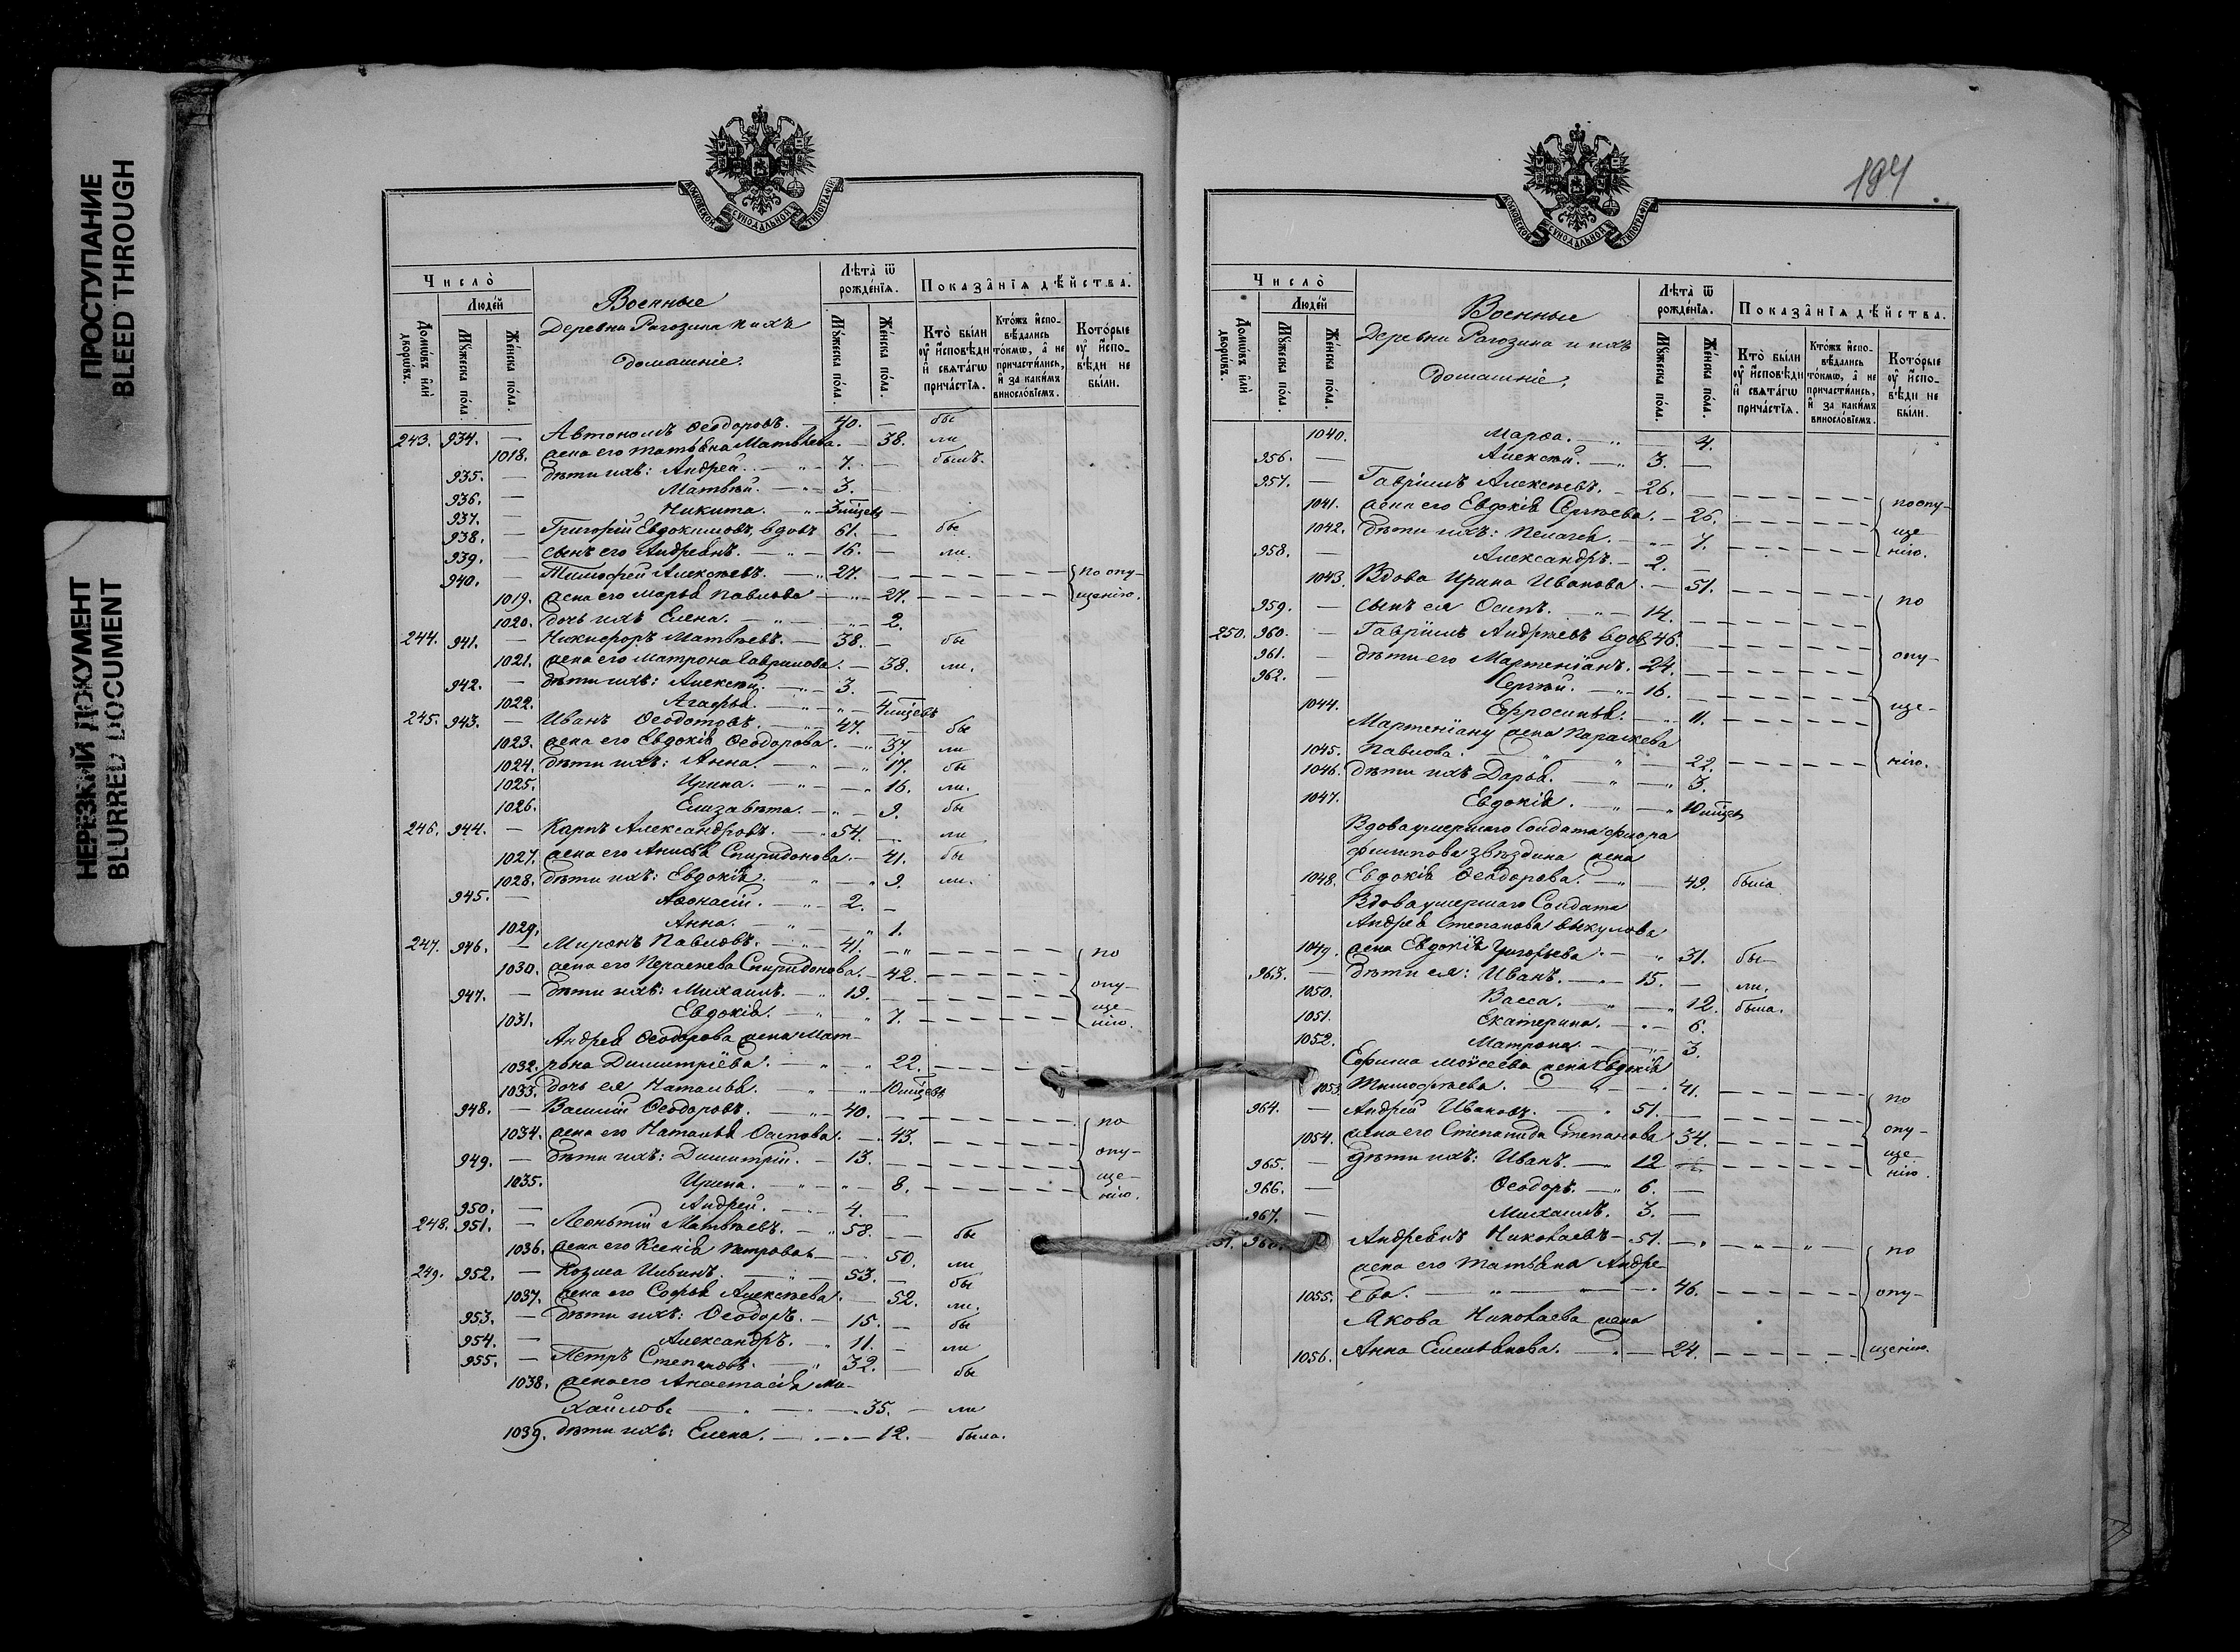 ПРОСТУПАНИЕ
BLEED THROUGH
НЕРЕЗКИЙ ДОКУМЕНТ
BLURRED DOCUMENT
МОСКОВСКОЙ СѴНОДАЛЬНОЙ ТИПОГРАФІИ
Число̀
Людей
Домѡвъ и҆лѝ дворѡвъ.
Мꙋжеска пола.
Женска пола.
Военные
Деревни Рагозина и ихъ
домашніе.
Лѣта̀ ѿ рожде́нїѧ.
Мꙋжеска пола.
Женска пола.
Показа̂нїѧ дѣ́йства.
Кто̀ бы́ли ᲂу҆ и҆сповѣди и҆ свѧта́гѡ прича́стїѧ.
Кто́жъ и҆спо-вѣдались то́кмѡ, а҆ не причасти́лись, и҆ за каки́мъ винослові́емъ.
Кото́рые ᲂу҆ и҆спо-вѣди не бы́ли.
243. 934. — Автономъ Ѳеодоровъ. — 40. — бы
1018. жена его Татьяна Матвѣева. — 38. ли
935. — дѣти ихъ: Андрей. — 7. — былъ.
936. — Матвѣй. — 3.
937. — Никита. — 3 мѣсцевъ —
938. — Григорій Евдокимовъ, вдовъ 61. — бы
939. — сынъ его Андреянъ. — 16. — ли.
940. — Тимофей Алексѣевъ. — 27. — по опу-
1019. жена его Марья Павлова — 27. — щенію.
1020. дочь ихъ Елена. — 2.
244. 941. — Никифоръ Матвѣевъ. — 38. — бы
1021. жена его Матрона Гаврилова. — 38. ли.
942. — дѣти ихъ: Алексѣй. — 3.
1022. Агафья. — 4 мѣсцевъ
245. 943. — Иванъ Ѳеодотовъ. — 47. — бы
1023. жена его Евдокія Ѳеодорова. — 37. ли
1024. дѣти ихъ: Анна. — 17. бы
1025. Ирина. — 16. ли.
1026. Елизавета. — 9. бы
246. 944. — Карпъ Александровъ. — 54. — ли
1027. жена его Анисья Спиридонова. — 41. бы
1028. дѣти ихъ: Евдокія. — 9. ли.
945. — Аѳонасій. — 2. —
1029. Анна. — 1.
247. 946. — Миронъ Павловъ. — 41. — по
1030. жена его Пераскева Спиридонова. — 42. —
947. — дѣти ихъ: Михаилъ. — 19. — опу-
1031. Евдокія. — 7. — ще-нію.
Андрея Ѳеодорова жена Мат-
1032. рона Димитріева. — 22. —
1033. дочь ея Наталья. — 10 мѣсцевъ
948. — Василій Ѳеодоровъ. — 40. — по
1034. жена его Наталья Осипова. — 43. —
949. — дѣти ихъ: Димитрій. — 13. — опу-
1035. Ирина. — 8. — ще-нію.
950. — Андрей. — 4. —
248. 951. — Леонтій Матвѣевъ. — 58. — бы
1036. жена его Ксенія Петрова — 50. ли
249. 952. — Козма Ильинъ. — 53. — бы
1037. жена его Софья Алексѣева. — 52. ли.
953. — дѣти ихъ: Ѳеодоръ. — 15. — бы
954. — Александръ. — 11. — ли
955. — Петръ Степановъ. — 32. — бы
1038. жена его Анастасія Ми-
хайлова — 35. — ли
1039. дѣти ихъ: Елена. — 12. — была.
194
МОСКОВСКОЙ СѴНОДАЛЬНОЙ ТИПОГРАФІИ
Число̀
Людей
Домѡвъ и҆лѝ дворѡвъ.
Мꙋжеска пола.
Женска пола.
Военные
Деревни Рагозина и ихъ
домашніе.
Лѣта̀ ѿ рожде́нїѧ.
Мꙋжеска пола.
Женска пола.
Показа̂нїѧ дѣ́йства.
Кто̀ бы́ли ᲂу҆ и҆сповѣди и҆ свѧта́гѡ прича́стїѧ.
Кто́жъ и҆спо-вѣдались то́кмѡ, а҆ не причасти́лись, и҆ за каки́мъ винослові́емъ.
Кото́рые ᲂу҆ и҆спо-вѣди не бы́ли.
1040. Марѳа. — 4.
956. — Алексѣй. — 3. —
957. — Гавріилъ Алексѣевъ. — 26. — по опу-
1041. жена его Евдокія Сергѣева. — 26. —
1042. дѣти ихъ: Пелагея. — 7. — ще-
958. — Александръ. — 2. — нію.
1043. Вдова Ирина Иванова. — 51. — по
959. — сынъ ея Осипъ. — 14. —
250. 960. — Гавріилъ Андреевъ вдов. 46. —
961. — дѣти его Мартеніанъ. 24. — опу-
962. — Сергѣй. — 16. —
1044. Ефросинья. — 11. — ще-
Мартеніану жена Параскева
1045. Павлова. — 22. — нію.
1046. дѣти ихъ Дарья. — 3.
1047. Евдокія. — 10 мѣсцев
Вдова умершаго Солдата Флора
Филипова Звѣздина жена
1048. Евдокія Ѳеодорова. — 49. была
Вдова умершаго Солдата
Андрея Степанова Викулова
1049. жена Евдокія Григорьева. — 31. бы-
963. — дѣти ея: Иванъ. — 15. — ли.
1050. Васса. — 12. была.
1051. Екатерина. — 6.
1052. Матрона. — 3.
Ефима Моѵсеева жена Евдокія
1053. Тимофѣева. — 41. —
964. — Андрей Ивановъ. — 51. — по
1054. жена его Степанида Степанова 34. — опу-
965. — Дѣти ихъ: Иванъ. — 12 — ще-
966. — Ѳеодоръ. — 6. — нію.
967. — Михаилъ. 3. —
Андреянъ Николаевъ — 51. — по
жена его Татьяна Андре-
1055. ева. — 46. — опу-
Якова Николаева жена
1056. Анна Емельянова. — 24. — щенію.